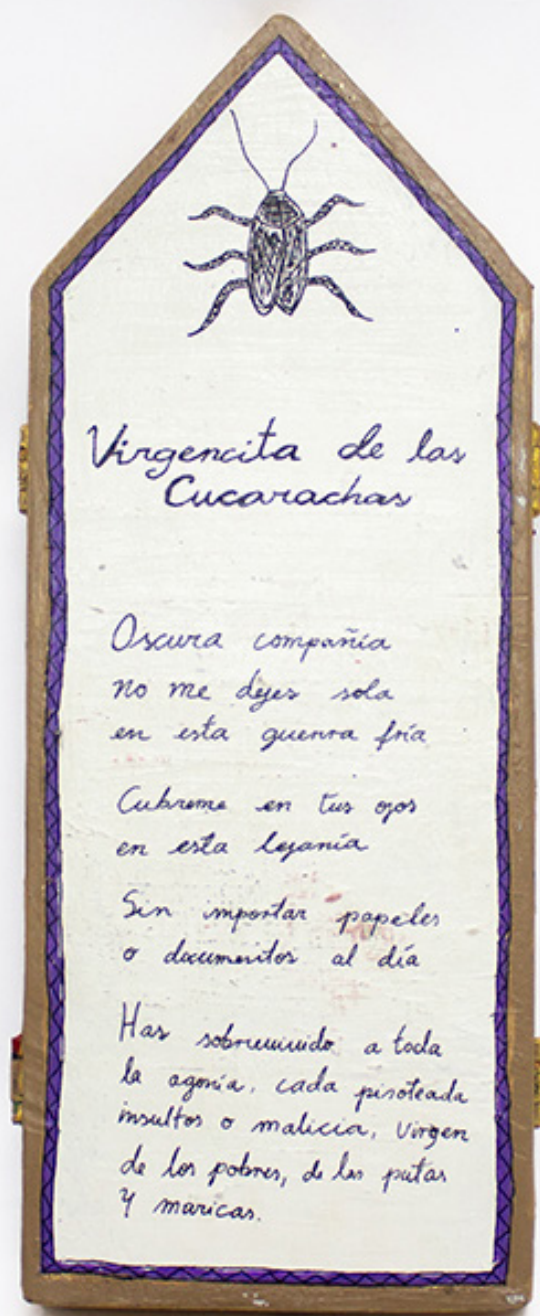 Virgencita de las
Cucarachas
Oscura compañia
no me dejes sola
en esta guerra fría
Cubreme en tus ojos
en esta lejanía
Sin importar papeles
o documentos al día
Has sobrevivido a toda
la agonía, cada pisoteada
insultos o malicia, Virgen
de los pobres, de las putas
y maricas.